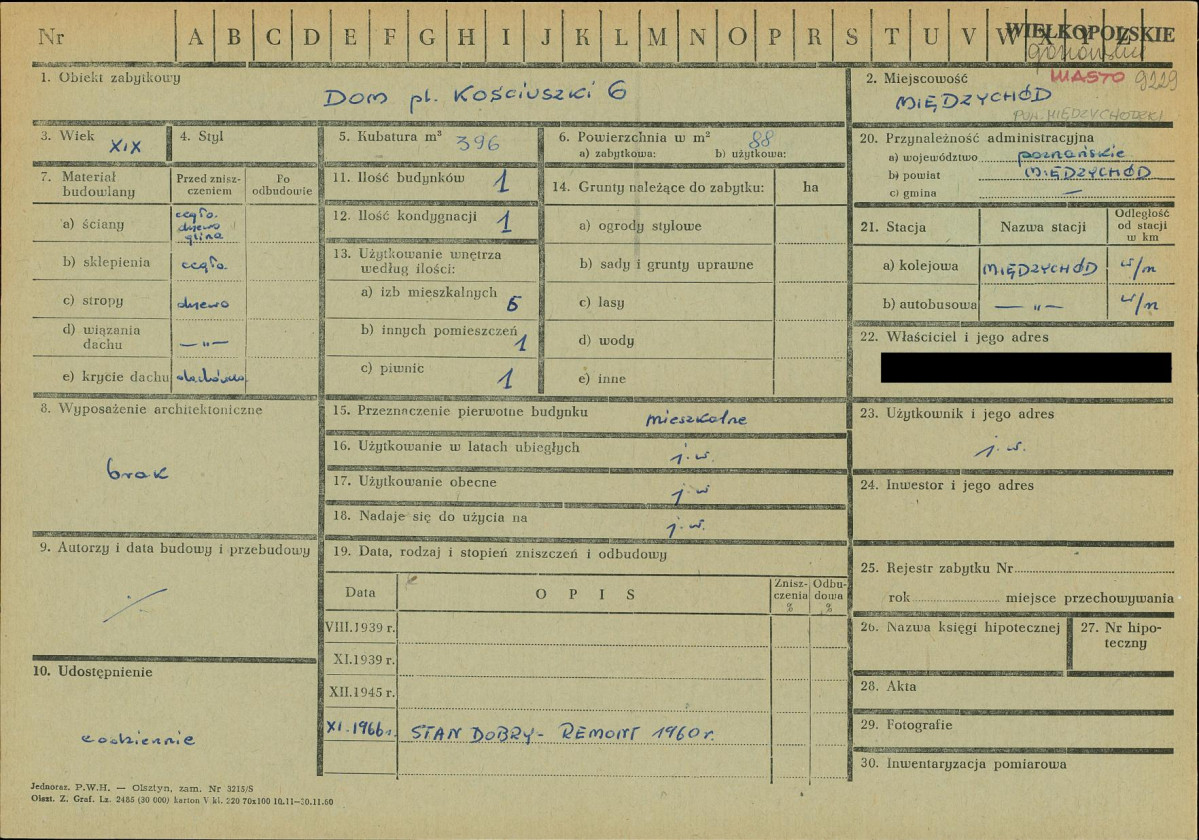 Nr A B C D E F G H I J K L M N O P R S T U V W X Y Z
WIELKOPOLSKIE
gorzowskie
1. Obiekt zabytkowy
DOM pl. KOŚCIUSZKI 6
2. Miejscowość MIASTO 9229
MIĘDZYCHÓD
POW. MIĘDZYCHODZKI
3. Wiek XIX
4. Styl
5. Kubatura m³ 396
6. Powierzchnia w m² 88
a) zabytkowa: b) użytkowa:
7. Materiał budowlany
Przed znisz-
czeniem
Po
odbudowie
a) ściany cegła.
drzewo
glina
b) sklepienia cegła.
c) stropy drzewo
d) wiązania
dachu —„—
e) krycie dachu dachówka
8. Wyposażenie architektoniczne
brak
9. Autorzy i data budowy i przebudowy
10. Udostępnienie
codziennie
11. Ilość budynków 1
12. Ilość kondygnacji 1
13. Użytkowanie wnętrza
według ilości:
a) izb mieszkalnych 5
b) innych pomieszczeń 1
c) piwnic 1
14. Grunty należące do zabytku: ha
a) ogrody stylowe
b) sady i grunty uprawne
c) lasy
d) wody
e) inne
15. Przeznaczenie pierwotne budynku mieszkalne
16. Użytkowanie w latach ubiegłych j.w.
17. Użytkowanie obecne j.w
18. Nadaje się do użycia na j.w.
19. Data, rodzaj i stopień zniszczeń i odbudowy
Data O P I S Znisz-
czenia
% Odbu-
dowa
%
VIII.1939 r.
XI.1939 r.
XII.1945 r.
XI.1966r. STAN DOBRY - REMONT 1960r.
20. Przynależność administracyjna
a) województwo poznańskie
b) powiat MIĘDZYCHÓD
c) gmina —
21. Stacja Nazwa stacji Odległość
od stacji
w km
a) kolejowa MIĘDZYCHÓD w/m
b) autobusowa —„— w/m
22. Właściciel i jego adres
23. Użytkownik i jego adres
j.w.
24. Inwestor i jego adres
25. Rejestr zabytku Nr
rok miejsce przechowywania
26. Nazwa księgi hipotecznej
27. Nr hipo-
teczny
28. Akta
29. Fotografie
30. Inwentaryzacja pomiarowa
Jednoraz. P.W.H. — Olsztyn, zam. Nr 3215/S
Olszt. Z. Graf. Lz. 2485 (30 000) karton V kl. 220 70x100 10.11—20.11.60